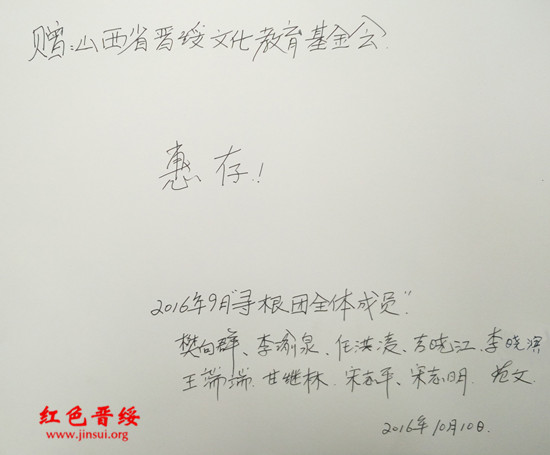 赠:山西省晋绥文化教育基金会
惠存!
2016年9月"寻根团全体成员"
樊向群、李瑜泉、任洪凌、吉晓江、李晓滨
王瑞瑞 甘继林 宋志平、宋志明 范文
2016年10月10日.
红色晋绥
www.jinsui.org